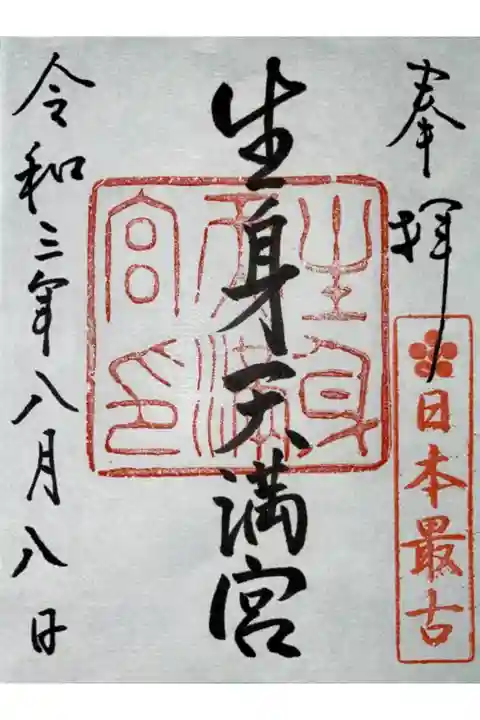 奉拝
日本最古
生身天満宮
生身
天満
宮印
令和三年八月八日